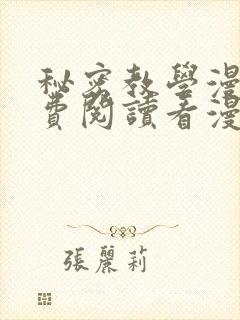 秘密教學漫
費閱讀看漫
張麗莉